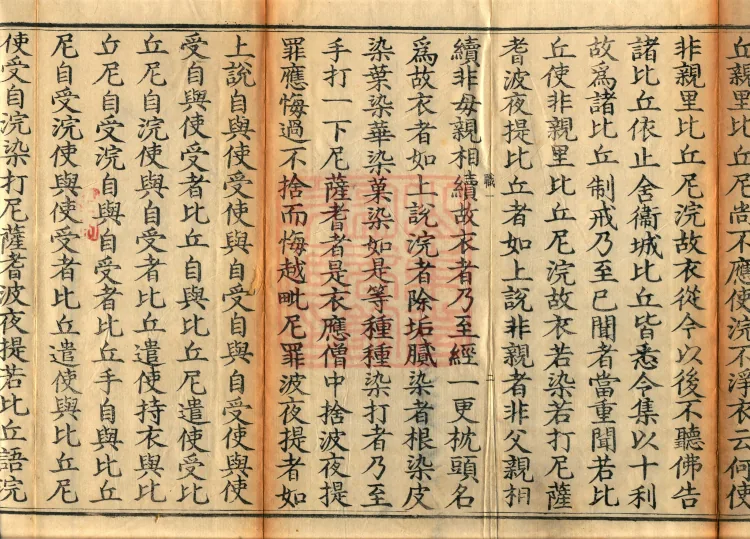 丘親里比丘尼尚不應使浣不淨衣云何使
非親里比丘尼浣故衣從今以後不聽佛告
諸比丘依止舍衞城比丘皆悉令集以十利
故爲諸比丘制戒乃至已聞者當重聞若比
丘使非親里比丘尼浣故衣若染若打尼薩
耆波夜提比丘者如上說非親者非父親相
續非母親相續故衣者乃至經一更枕頭名
爲故衣者如上說浣者除垢膩染者根染皮
染葉染華染菓染如是等種種染打者乃至
手打一下尼薩耆者是衣應僧中捨波夜提
罪應悔過不捨而悔越毗尼罪波夜提者如
上說自與使受使與自受自與自受使與使
受自與使受者比丘自與比丘尼遣使受比
丘尼自浣使與自受者比丘遣使持衣與比
丘尼自受浣自與自受者比丘手自與比丘
尼自受浣使與使受者比丘遣使與比丘尼
使受自浣染打尼薩耆波夜提若比丘語浣
職一